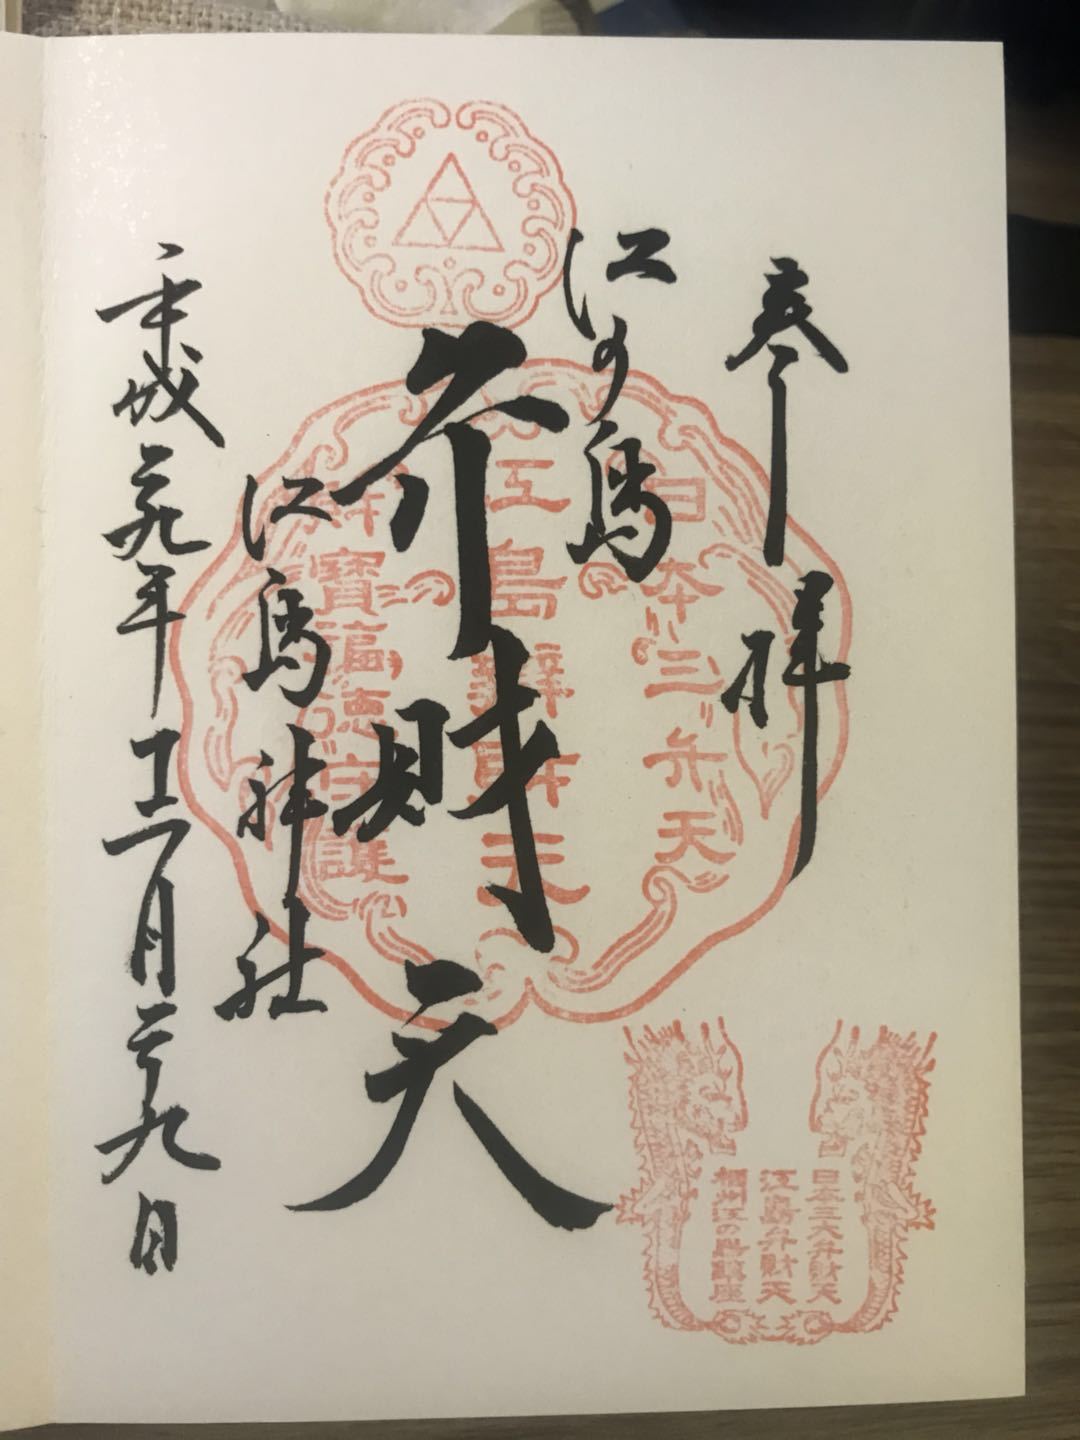 奉拝
江の島
弁財天
江島神社
平成二九年十二月二十九日
日本三弁天
江島辨財天
辨寶福徳守護
日本三大弁財天
江島弁財天
相州江の島鎮座